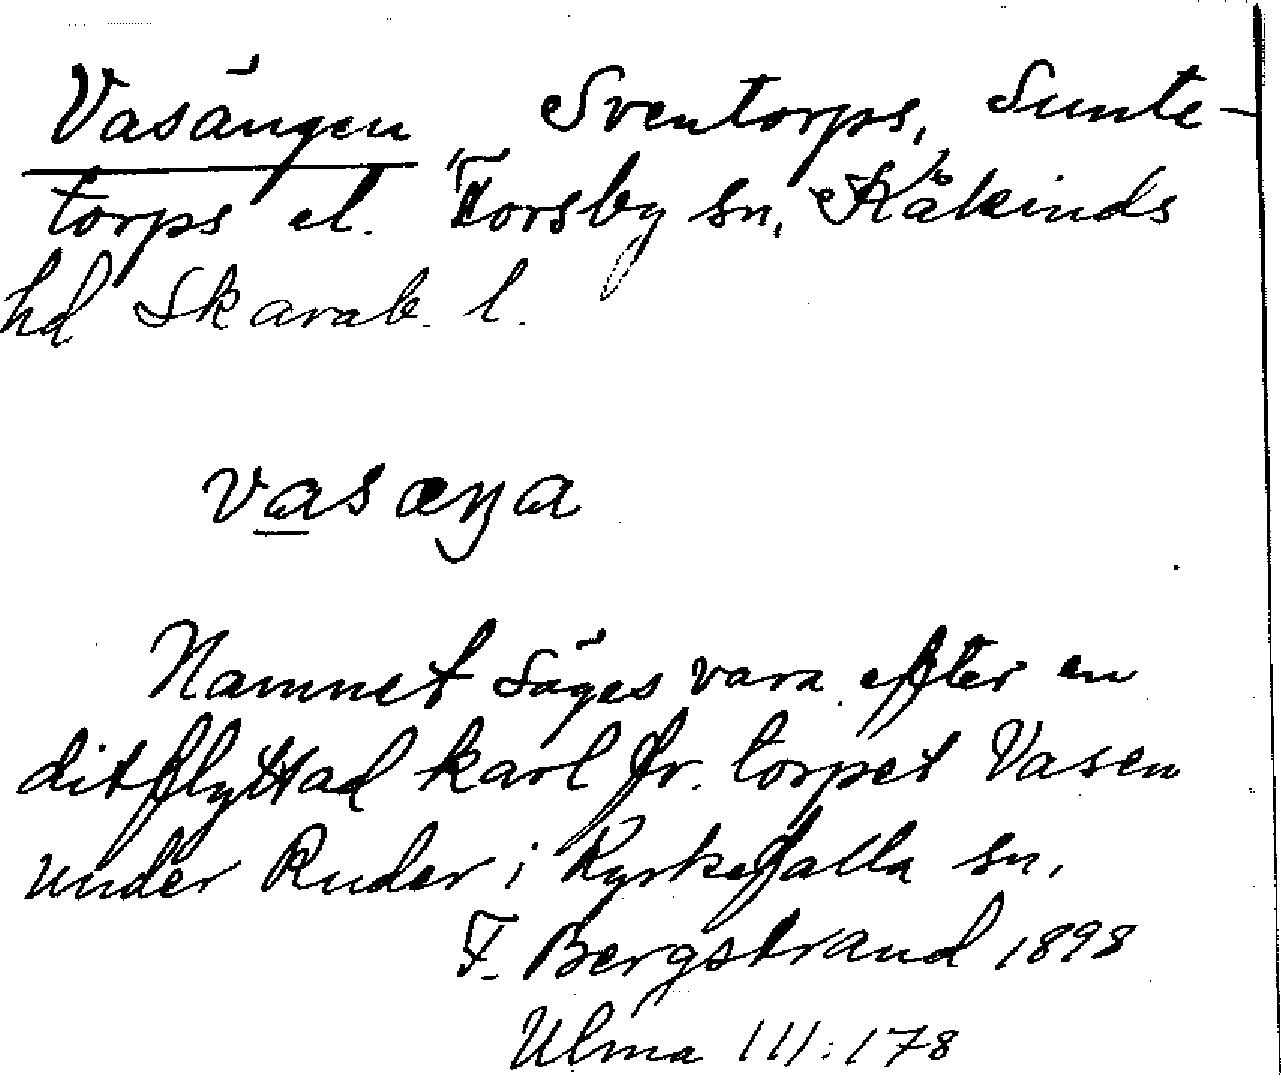 Vasängen Sventorps, Sunte-
torps el. Forsby sn, Kåkinds
hd Skarab. l.
vasæŋa
Namnet säges vara efter en
ditflyttad karl fr. torpet Vasen
under Ruder i Kyrkefalla sn.
F. Bergstrand 1898
Ulma 111:178